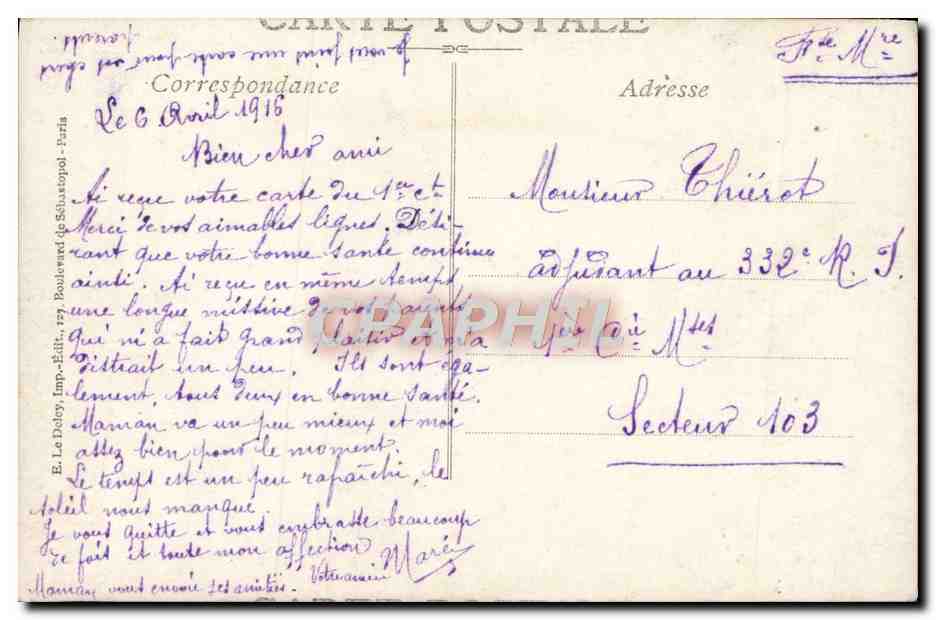 CARTE POSTALE
Je vous joint une carte pour vos chers
parents.
Correspondance
Le 6 Avril 1916
Bien cher ami
Ai reçue votre carte du 1er ct
Merci de vos aimables lignes. Dési-
rant que votre bonne santé continue
ainsi. Ai reçu en même temps
une longue missive de vos
qui m'a fait grand plaisir et m'a
distrait un peu. Ils sont éga-
lement, tous deux en bonne santé.
Maman va un peu mieux et moi
assez bien pour le moment.
Le temps est un peu rafraîchi, le
soleil nous manque.
Je vous quitte et vous embrasse beaucoup
de fois et toute mon affection
Votre amie
Maman vous envoie ses amitiés.
Adresse
Fde Mre
Monsieur Thiérot
adjudant au 332e R. I.
1ère Cie Mses
Secteur 103
E. Le Deley, Imp.-Édit., 127, Boulevard de Sébastopol - Paris
CPAPHIL